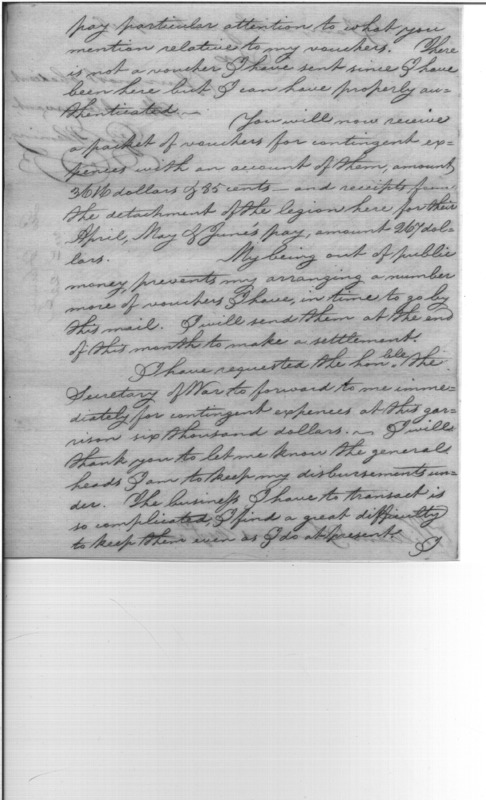 pay particular attention to what you
mention relative to my vouchers. There
is not a voucher I have sent since I have
been here but I can have properly au-
thenticated.—
You will now receive
a packet of vouchers for contingent ex-
pences with an account of them, amount
3616 dollars & 85 cents— and receipts from
the detachment of the legion here for their
April, May & June's pay, amount 267 dol-
lars.
My being out of public
money, prevents my arranging a number
more of vouchers I have, in time to go by
this mail. I will send them at the end
of this month to make a settlement.
I have requested the hon.ble the
Secretary of War to forward to me imme-
diately for contingent expences at this gar-
rison six thousand dollars.— I will
thank you to let me know the general
heads I am to keep my disbursements un-
der. The business I have to transact is
so complicated, I find a great difficultty
to keep them even as I do at present.
I